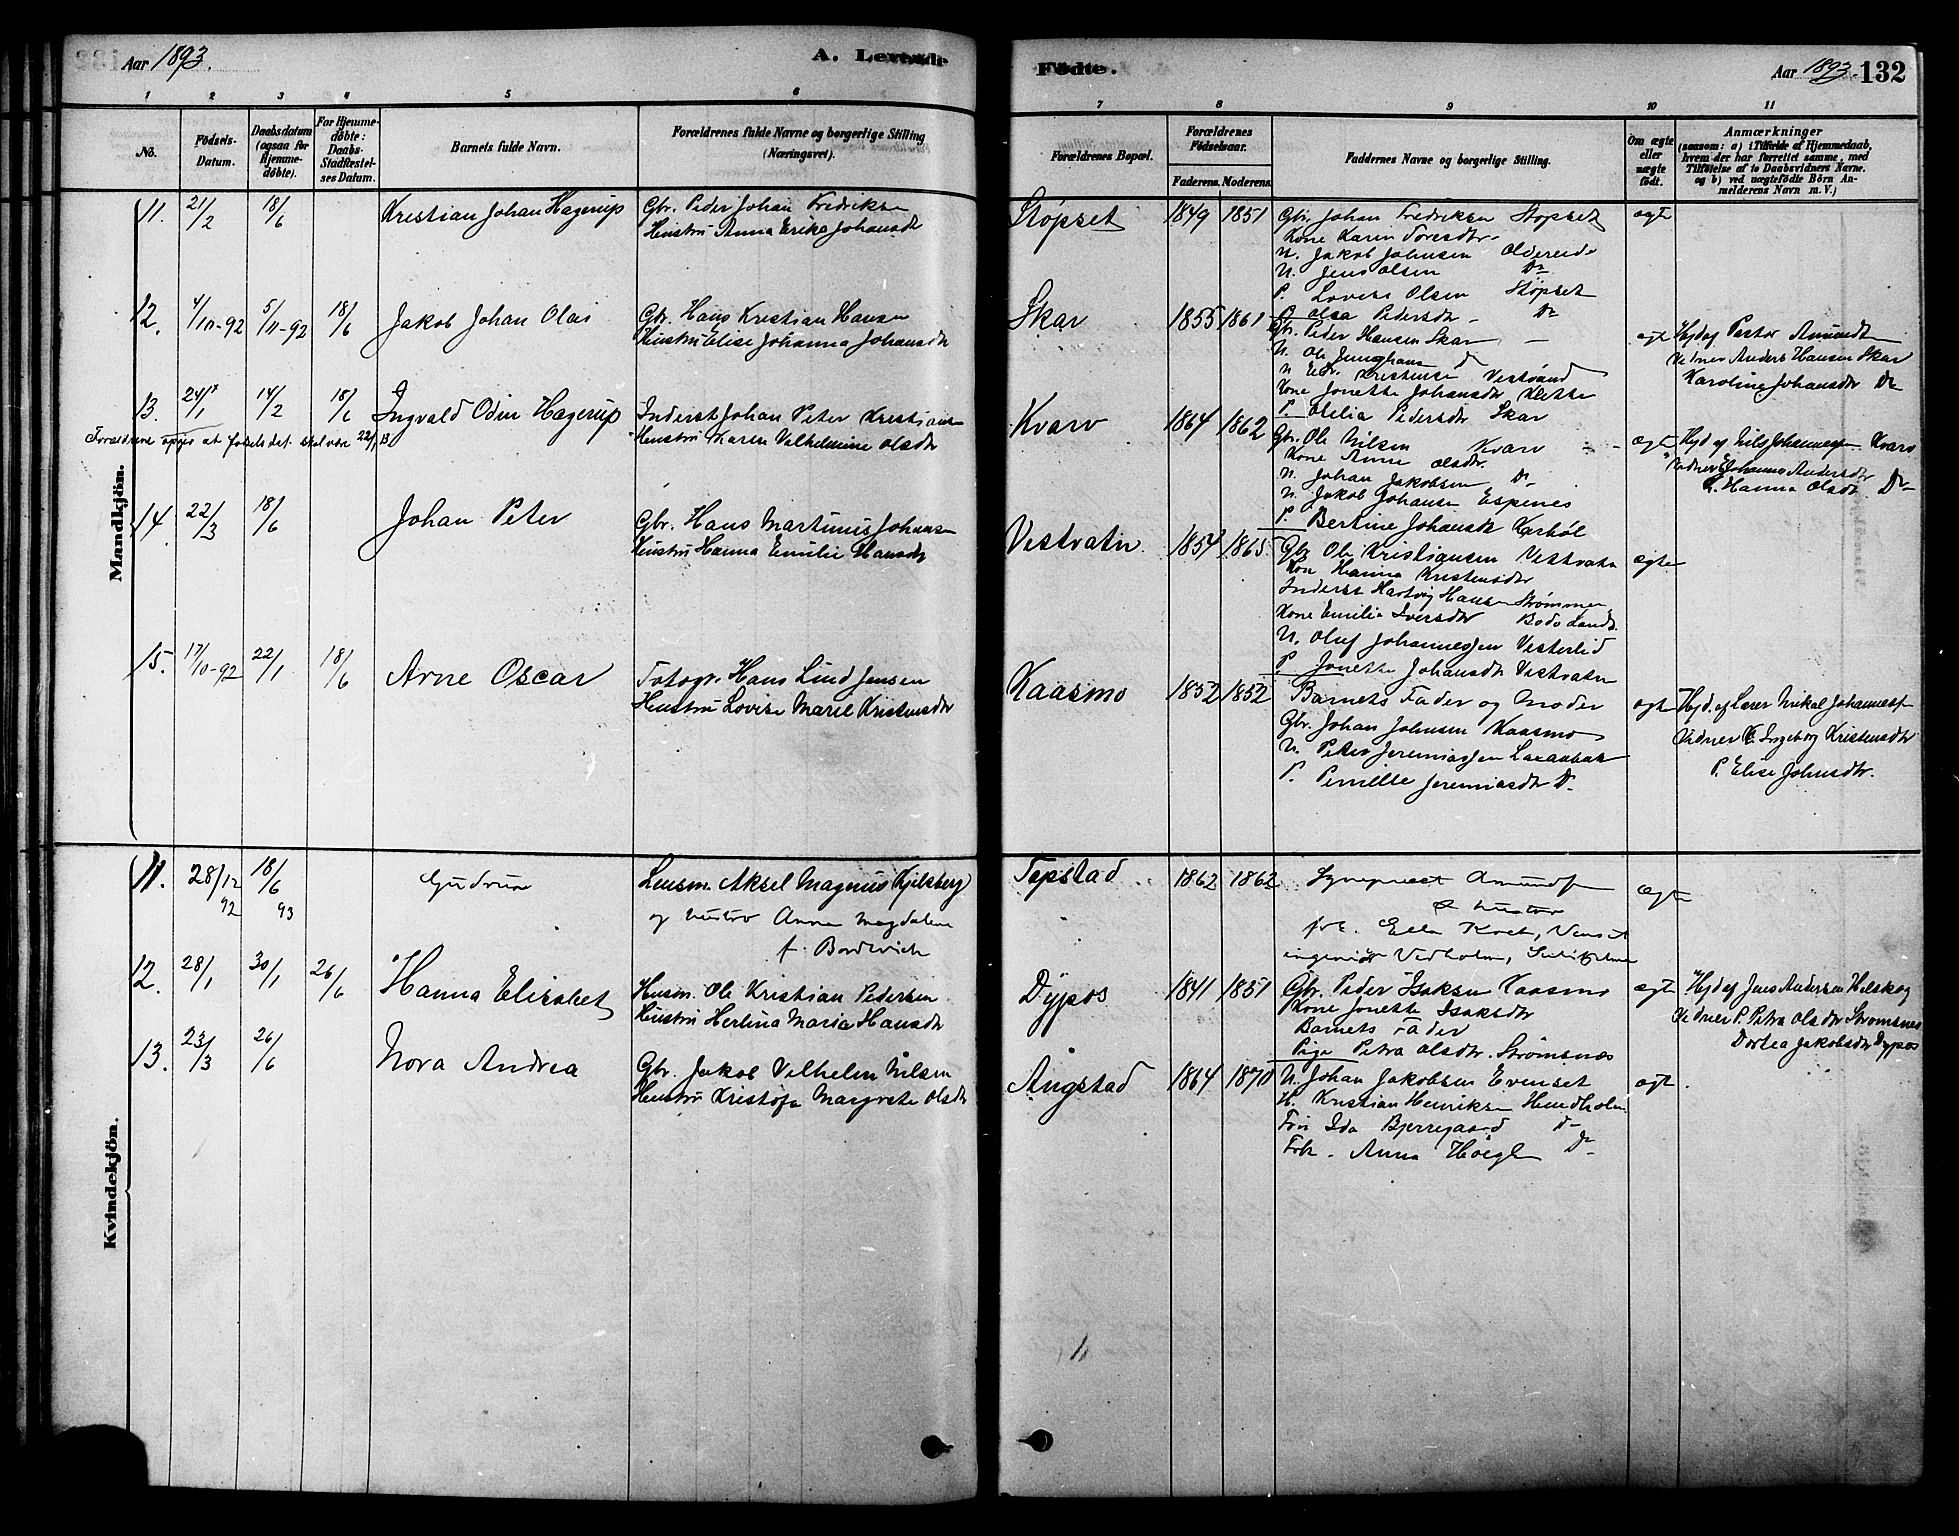 Aar 1893.
A. Levende
Fødte.
Aar 1893.
132
1 2 3 4 5 6 7 8 9 10 11
No.
Fødsels-Datum.
Daabsdatum (ogsaa for Hjemmedøbte).
For Hjemmedøbte: Daabs-Stadfæstelses Datum.
Barnets fulde Navn.
Forældrenes fulde Navne og borgerlige Stilling (Næringsvei).
Forældrenes Bopæl.
Forældrenes Fødselsaar.
Faderens. Moderens.
Faddernes Navne og borgerlige Stilling.
Om ægte eller uægte født.
Anmærkninger (saasom: a) i Tilfælde af Hjemmedaab, hvem der har forrettet samme, med Tilføielse af to Daabsvidners Navne. og b) ved uægtefødte Børn Anmelderens Navn m. V.)
Mandkjön.
11. 21/2 18/6 Kristian Johan Hagerup
Gbr. Peder Johan Fredriksen
Hustru Anna Erika Johansdtr
Støpset 1849 1851
Gbr. Johan Fredriksen Støpset
Kone Karen Toresdtr
U. Jakob Johnsen Oldereide
U. Jens Olsen Do
P. Lovise Olsen Støpset
P. Olsa Pedersdtr Do
ægte
12. 4/10-92 5/11-92 18/6 Jakob Johan Olai
Gbr. Hans Kristian Hansen
Hustru Elise Johanna Johansdtr
Skar 1855 1861
Gbr. Peder Hansen Skar
U. Ole Junghans d
U. Edv. Kristensen Vestvand
Kone Jonette Johansdtr Klette
P. Otelia Pedersdtr Skar
ægte
Hjd af Pastor Amundsen
Vidner Anders Hansen Skar
Karoline Johansdtr Do
13. 24/1 14/2 18/6 Ingvald Odin Hagerup
Forældrene opgir at fødselsdat. skal være 22/1 B
Inderst Johan Peter Kristians
Hustru Maren Vilhelmine Olsdtr
Kvarv 1864 1862
Gbr. Ole Nilsen Kvarv
Kone Anne Olsdtr.
U. Johan Jakobsen Do
U. Jakob Johansen Espenes
P. Bertine Johansdtr Karbøl
ægte
Hjd af Nils Johannessen Kvarv
Vidner Johanna Andersdtr
Hanna Olsdtr Do
14. 22/3 18/6 Johan Peter
Gbr. Hans Martinus Johansen
Hustru Hanna Emilie Hansdtr
Vestvatn. 1854 1865
Gbr Ole Kristiansen Vestvatn
Kone Hanna Kristensdtr
Inderst Hartvig Hansen Strømmen
Kone Emilie Iversdtr Bodø Lands.
U. Oluf Johannessen Vesterlid
P. Jonette Johansdtr Vestvatn
ægte
15. 17/10-92 22/1 18/6 Arne Oscar
Fotogr. Hans Lind Jensen
Hustru Lovise Marel Kristensdtr
Kaasmo 1852 1852
Barnets Fader og Moder
Gbr. Johan Johnsen Kaasmo
U. Peter Jeremiassen Laxaabak
P. Pernille Jeremiasdtr Do
ægte
Hjd. af Lærer Mikal Johannessen
Vidner K. Ingeborg Kristensdtr
P. Elise Johnsdtr.
Kvindekjön.
11. 28/12 92 18/6 93 Gudrun
Lensm. Aksel Magnus Kjelsberg
og hustro Anna Magdalena
f. Bordevich
Tepstad 1862 1862
Sognepræst Amundsen
& hustro
frk. Ella Koet, Venset
ingeniør Vedholm, Sulitjelma
ægte
12. 28/1 30/1 26/6 Hanna Elisabet
Husm. Ole Kristian Pedersen
Hustru Herlina Maria Hansdtr
Dypos 1841 1851
Gbr. Peder Isaksen Kaasmo
Kone Jonette Isaksdtr
Barnets Fader
Pige Petra Olsdtr. Strømsnes
ægte
Hjd af Jens Andersen Helskog
Vidner P. Petra Olsdtr Strømsnes
Dortea Jakobsdtr Dypos
13. 23/3 26/6 Nora Andrea
Gbr. Jakob Vilhelm Nilsen
Hustru Kristofa Margrete Olsdtr
Angstad 1864 1870
U. Johan Jakobsen Evenset
U. Kristian Henriksen Hundholm
Fru Ida Bjerregaard Do
Frk. Anna Høegh Do
ægte.